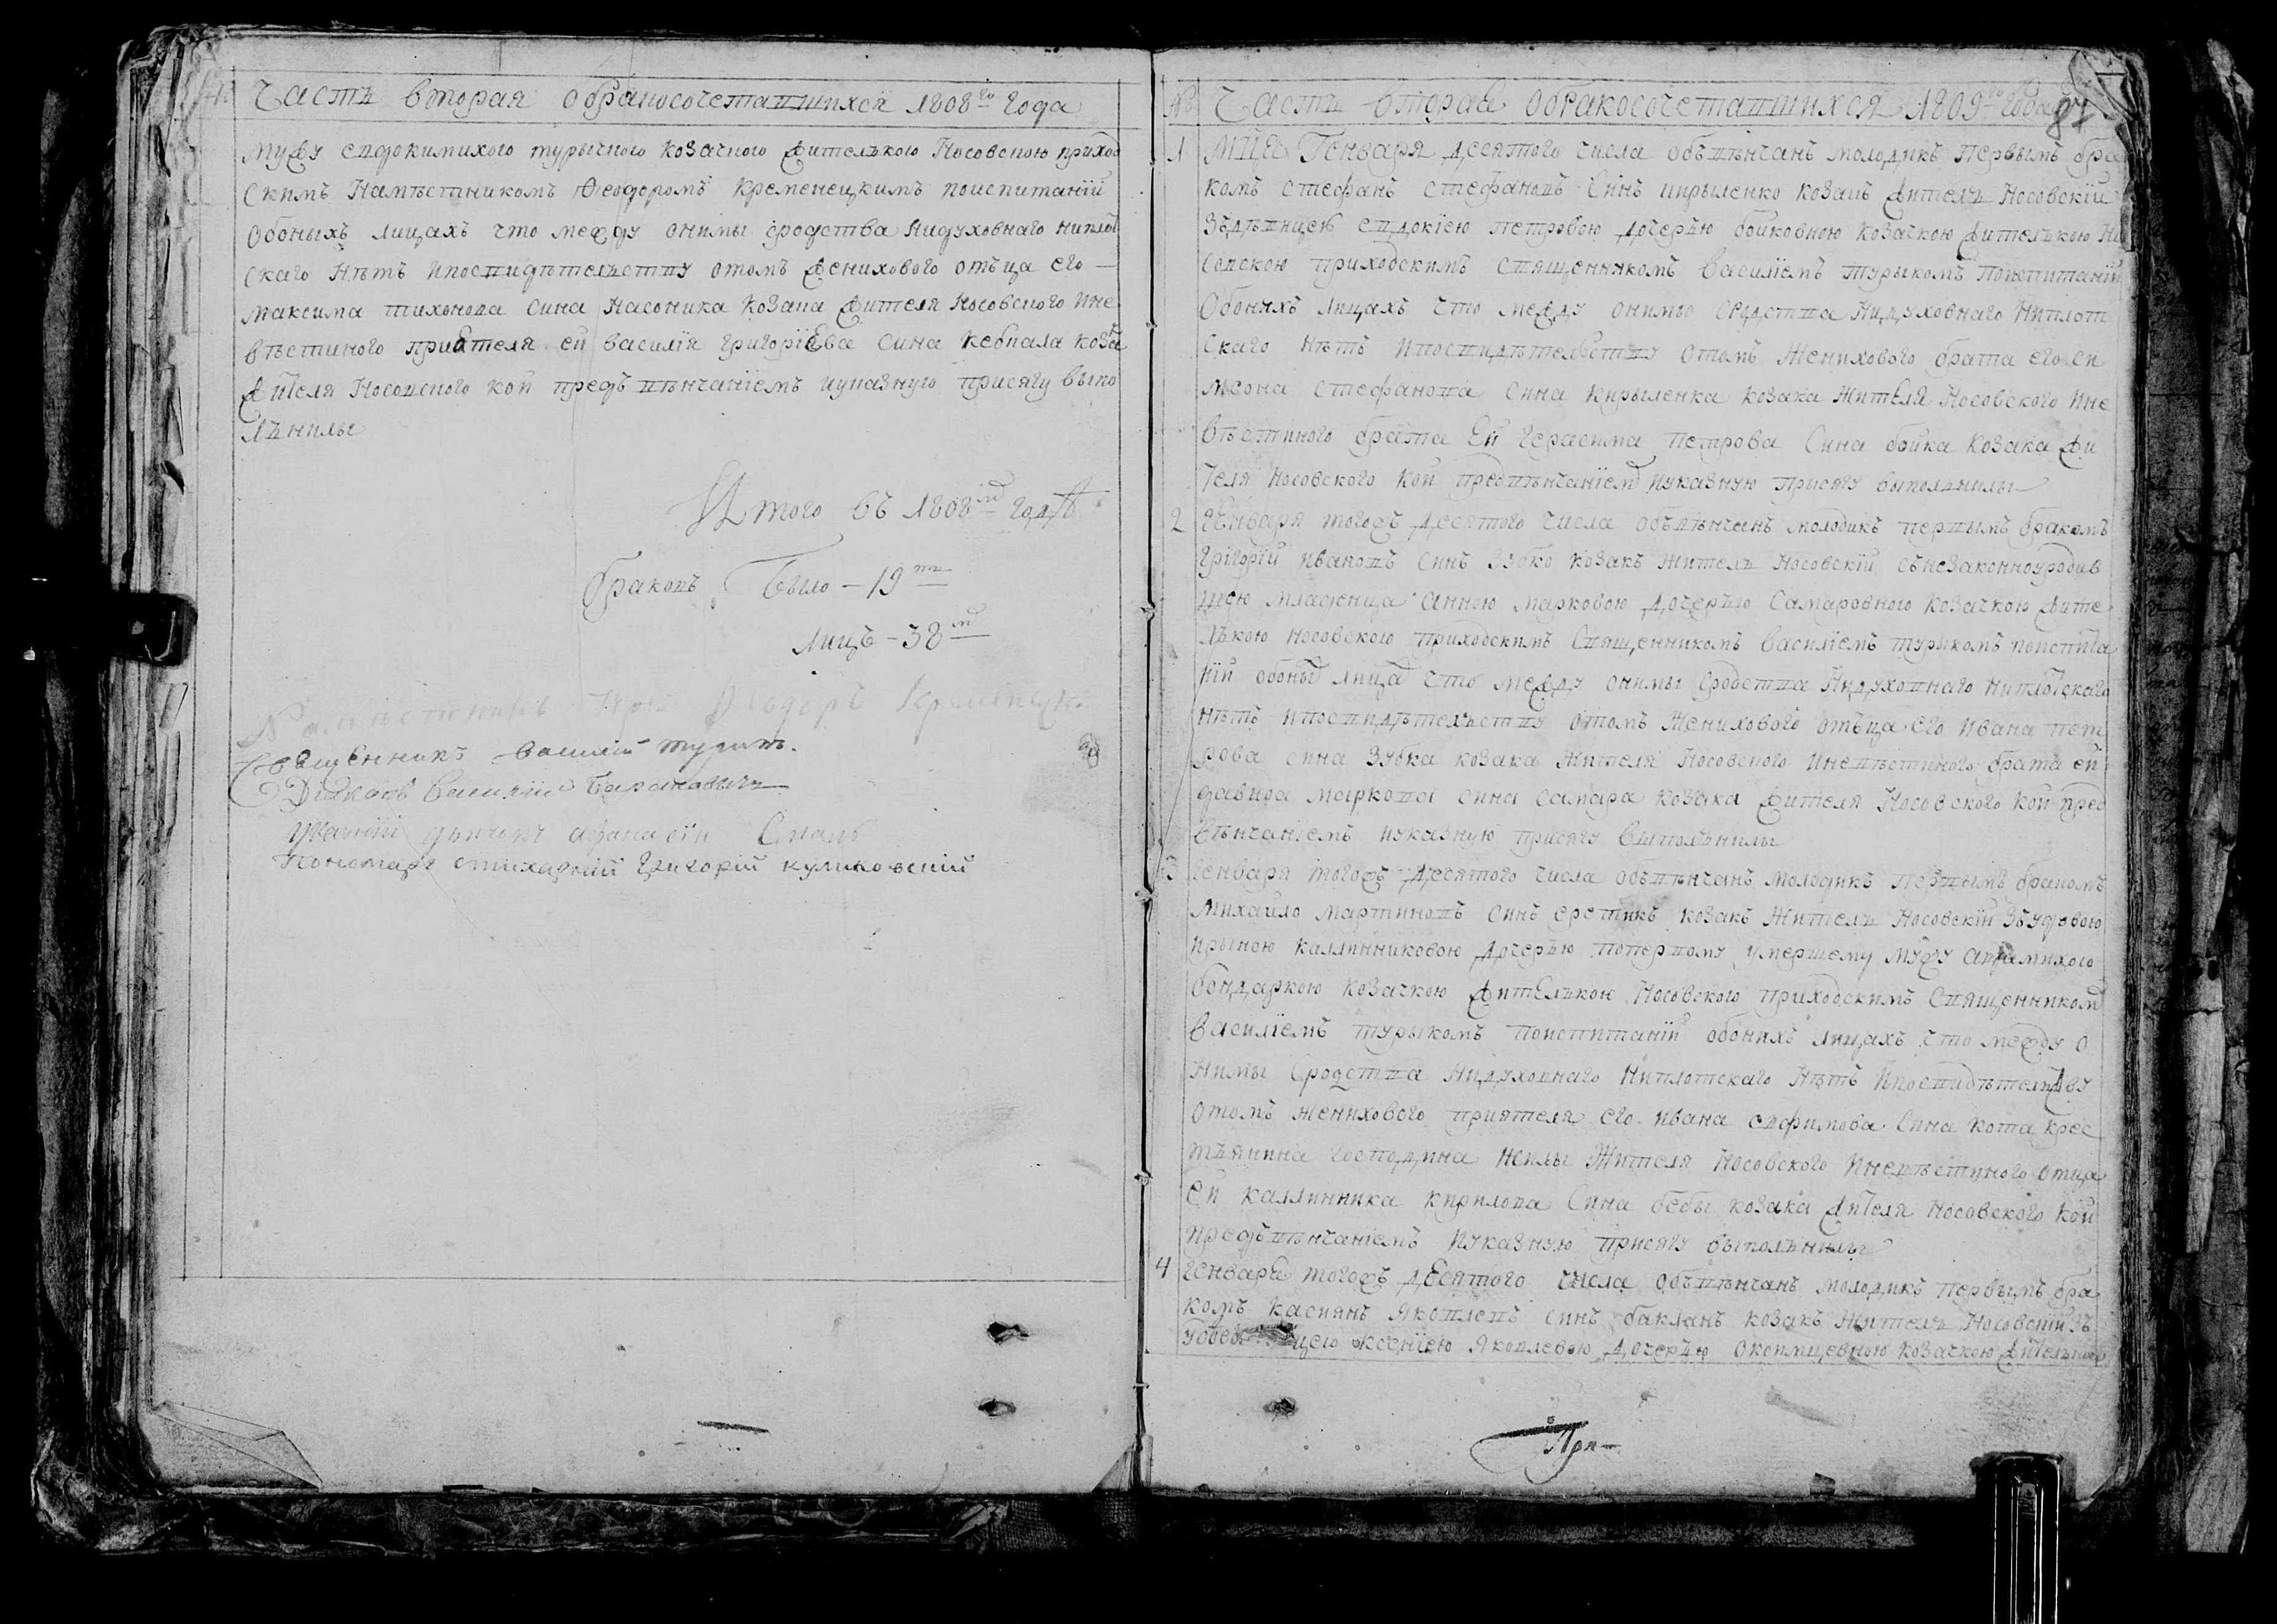 Часть вторая обракосочетавшихся 1808го года
мужу евдокимихою турычною козачкою жителькою Носовскою приход
скимъ Намѣстникомъ Феодоромъ Кременецкимъ поиспитаніи
обоныхъ лицахъ что между онимы сродства нидуховнаго ниплот
скаго Нѣтъ ипосвидѣтельству отомъ женихового отъца его —
максима тихонова сина Насоника козака жителя Носовского ине
вѣстиного приятеля ей василія григоріева сина кебкала коза
жителя Носовского кои предъ вѣнчаніемъ иуказную присягу выпо
лънилы
Итого въ 1808мъ годѣ
браковъ было — 19ть
лицъ — 38мъ
Намѣстникъ Феодоръ Кременецк.
Священникъ василій турикъ.
Діаконъ Василій Барановичъ
Пономарь стихарній Григорій куликовскій
№ Часть вторая обракосочетавшихся 1809го года
87
1 Мца Генваря десятого числа объвѣнчанъ молодикъ Первымъ бра
комъ стефанъ стефановъ синъ кирыленко козакъ житель Носовскій
зъдѣвицею евдокіею петровою дочерью бойковною козачкою жителькою Но
совскою приходскимъ священникомъ василіемъ турыкомъ поиспитаніи
обонихъ лицахъ что между онимы сродства Нидуховнаго Ниплот
скаго нѣтъ ипосвидѣтельству отомъ Женихового брата его си
мъсона стефанова сина Кирыленка козака Жителя Носовского Ине
вѣстиного брата Ей герасима Петрова Сина бойка козака жи
теля Носовского кои предвѣнчаніем иуказную присягу выполънилы
2 Генваря тогожъ десятого числа объвѣнчанъ молодикъ первымъ бракомъ
григорій ивановъ синъ зубко козакъ житель Носовскій сънезаконноуродив
шею младенца анною марковою дочерью самаровною козачкою жите
лькою носовскою приходскимъ Священникомъ василіемъ турыкомъ поиспита
ніи обоных лицах что между онимы сродства Нидуховнаго ниплотскаго
нѣтъ ипосвидѣтельству отомъ Женихового отъца его ивана пет
рова сина Зубка козака Жителя Носовского Иневѣстиного брата ей
давида маркова сина самара козака жителя Носовского кои пред
вѣнчаніемъ иуказную присягу выполънилы
3 Генваря тогожъ десятого числа объвѣнчанъ молодикъ первымъ бракомъ
Михайло мартиновъ синъ еретикъ козакъ Житель Носовскій зъудовою
ирыною каллиниковою дочерью попервому умершему мужу
бондаркою козачкою жителькою Носовскою приходскимъ Священником
василіемъ турыкомъ поиспитаніи обонихъ лицахъ что между о
нимы сродства нидуховнаго Ниплотскаго Нѣтъ ипосвидѣтельству
отомъ женихового приятеля его ивана евфимова Сина кота крес
тъянина господина Жителя Носовского иневѣстиного отца
ей каллинника кирилова Сина бебы козака жителя носовского кои
предъвѣнчаніемъ иуказную присягу выполънилы
4 Генваря тогожъ десятого числа объвѣнчанъ молодикъ первымъ бра
комъ касиянъ яковлевъ синъ бакланъ козакъ житель Носовскій зъ
ксеніею яковлевою дочерью козачкою жителькою
При—